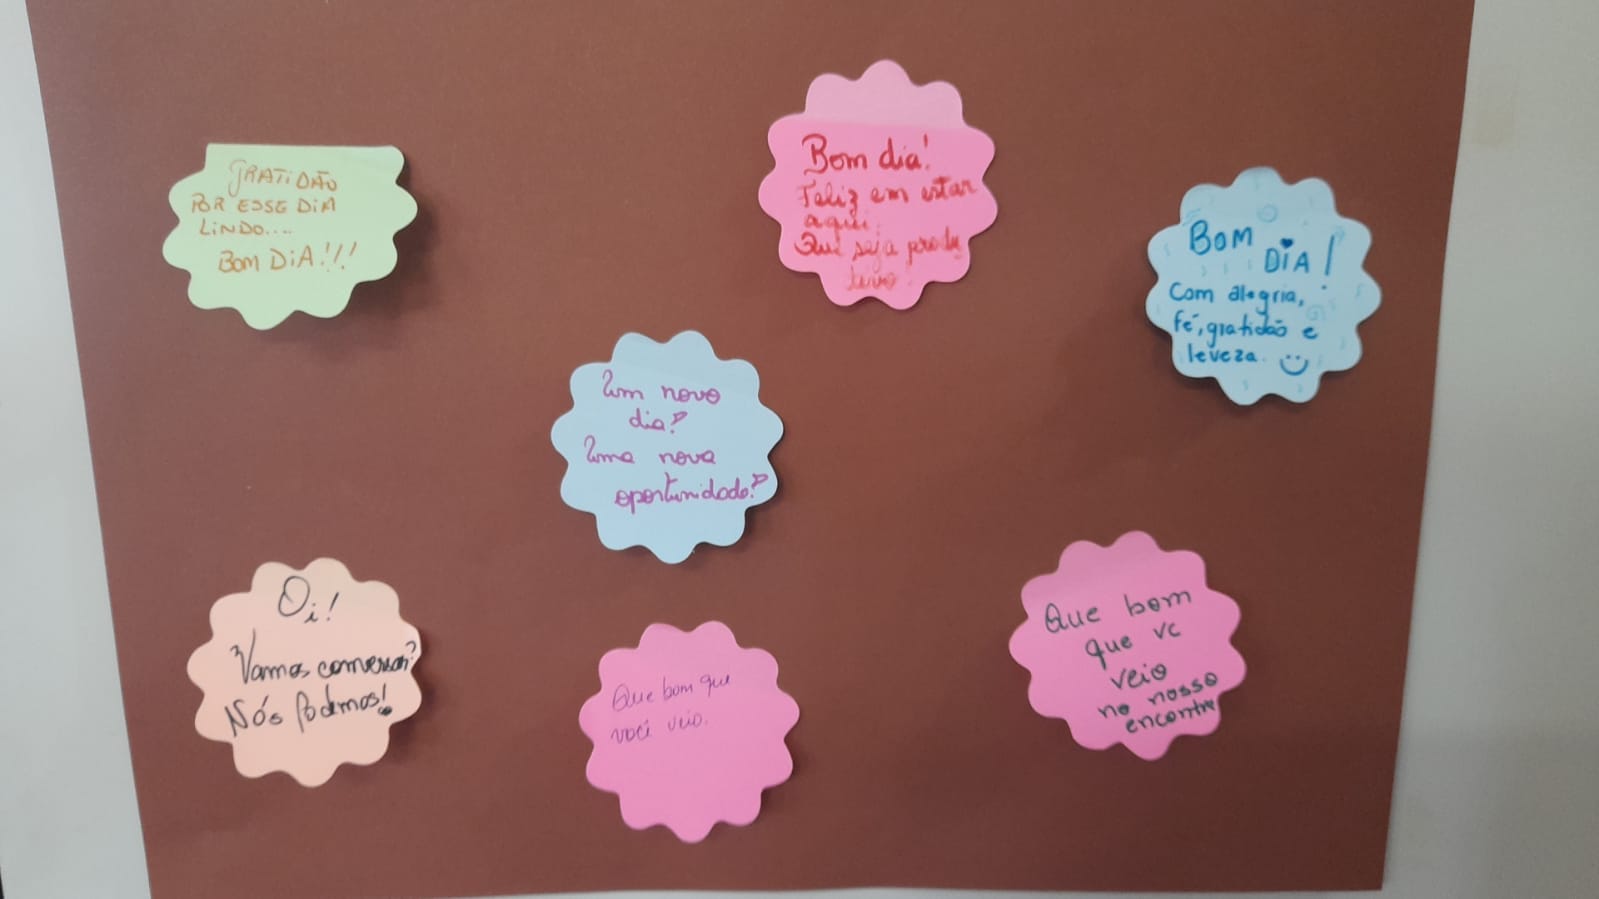 GRATIDÃO
POR ESSE DIA
LINDO....
BOM DIA!!!
Bom dia!
Feliz em estar
aqui.
Que seja produ
tivo!
BOM
DIA!
Com alegria,
fé, gratidão e
leveza.
Um novo
dia?
Uma nova
oportunidade?
Oi!
Vamos conversar?
Nós Podemos!
Que bom que
você veio.
Que bom
que vc
veio
no nosso
encontro